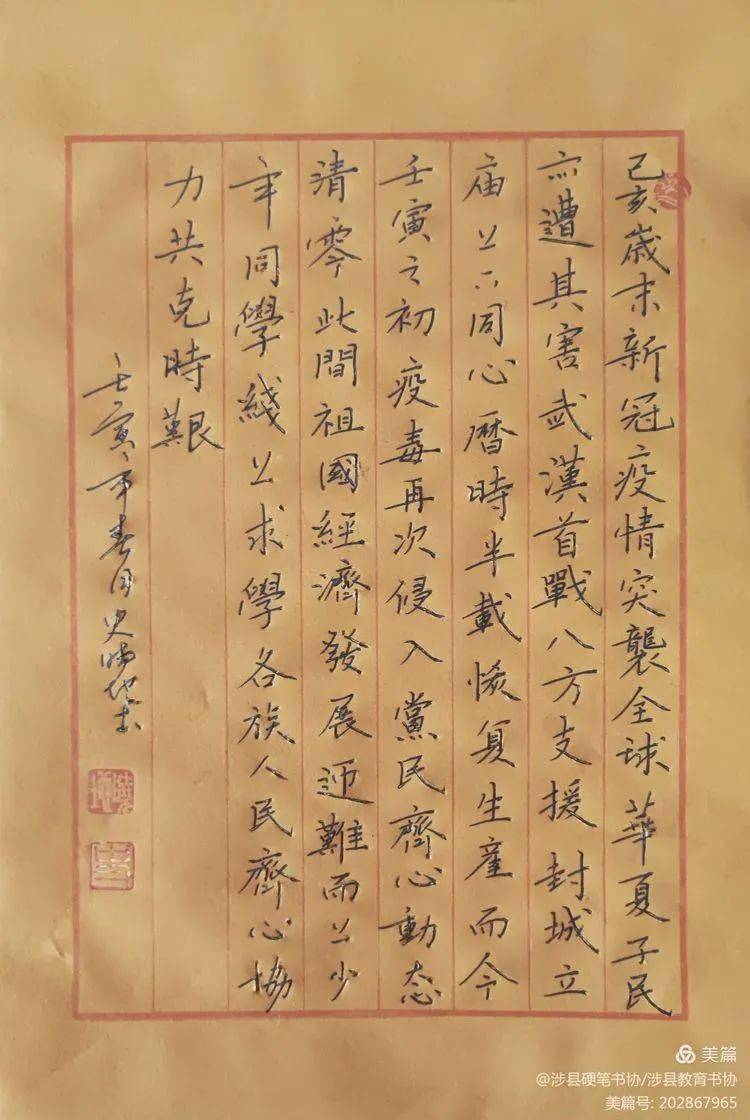 己亥歲末新冠疫情突襲全球華夏子民
亦遭其害武漢首戰八方支援封城立
庙上下同心曆時半載恢复生產而今
壬寅之初疫毒再次侵入黨民齊心動态
清零此間祖國經濟發展迎難而上少
年同學綫上求學各族人民齊心協
力共克時艱
壬寅年春月史
美篇
@涉县硬笔书协/涉县教育书协
美篇号: 202867965